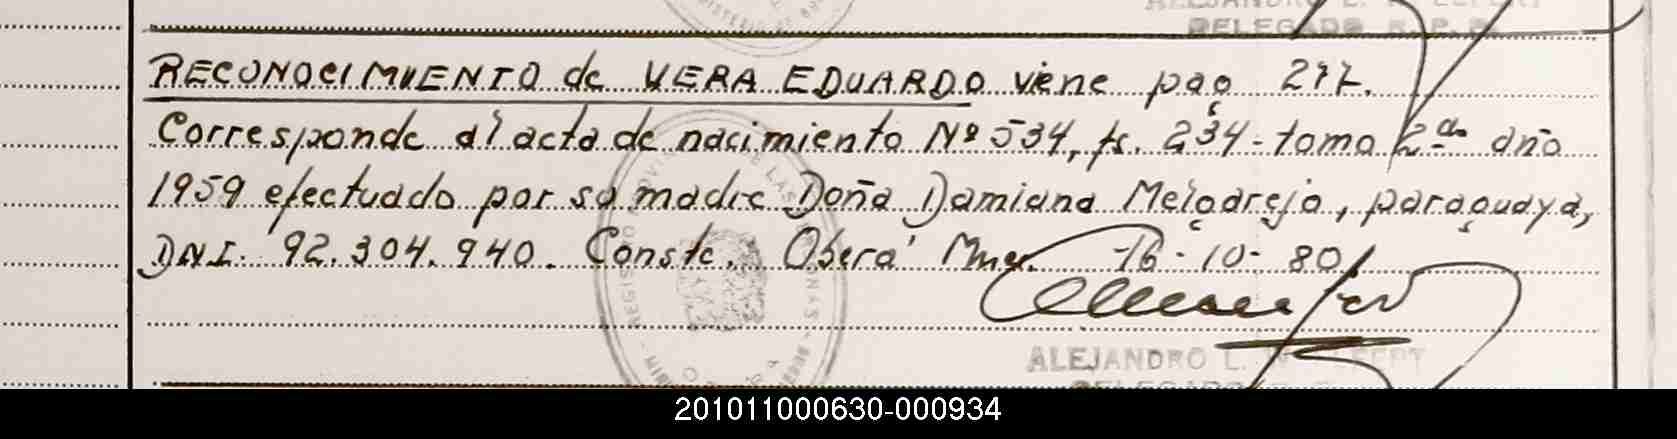 ALEJANDRO L. WELFERT
DELEGADO R. P.
RECONOCIMIENTO de VERA EDUARDO viene pag 277.
Corresponde al acta de nacimiento Nº 534, fs. 234 - tomo 2do año
1959 efectuado por su madre Doña Damiana Melgarejo, paraguaya,
DNI. 92.304.940. Conste. Oberá Mnes. 16-10-80
ALEJANDRO L. WELFERT
DELEGADO
201011000630-000934